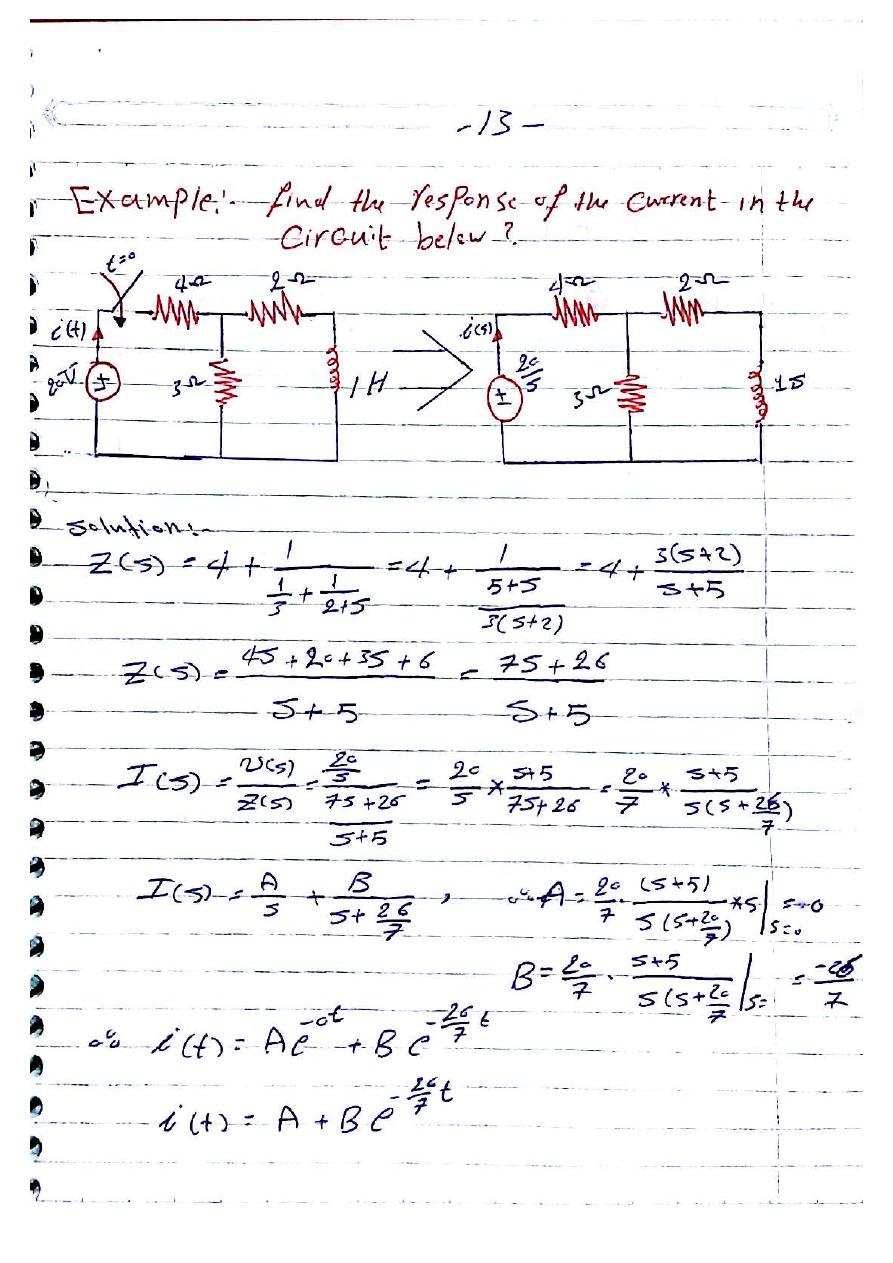 -13-
Example:- find the response of the current in the
Circuit below?
t=0
4Ω 2Ω 4Ω 2Ω
i(t) i(s)
20V 3Ω 1H 20/s 3Ω 1S
Solution:-
Z(s) = 4 + 1/(1/3 + 1/(2+s)) = 4 + 1/((s+5)/(3(s+2))) = 4 + 3(s+2)/(s+5)
Z(s) = (4s+20+3s+6)/(s+5) = (7s+26)/(s+5)
I(s) = V(s)/Z(s) = (20/s)/((7s+26)/(s+5)) = 20/s * (s+5)/(7s+26) = 20/7 * (s+5)/(s(s+26/7))
I(s) = A/s + B/(s+26/7) , ∴ A = 20/7 . (s+5)/(s(s+20/7)) *s |s=0 = 0
B = 20/7 . (s+5)/(s(s+20/7)) |s= = -26/7
∴ i(t) = Ae^-0t + Be^-26/7 t
i(t) = A + Be^-26/7 t